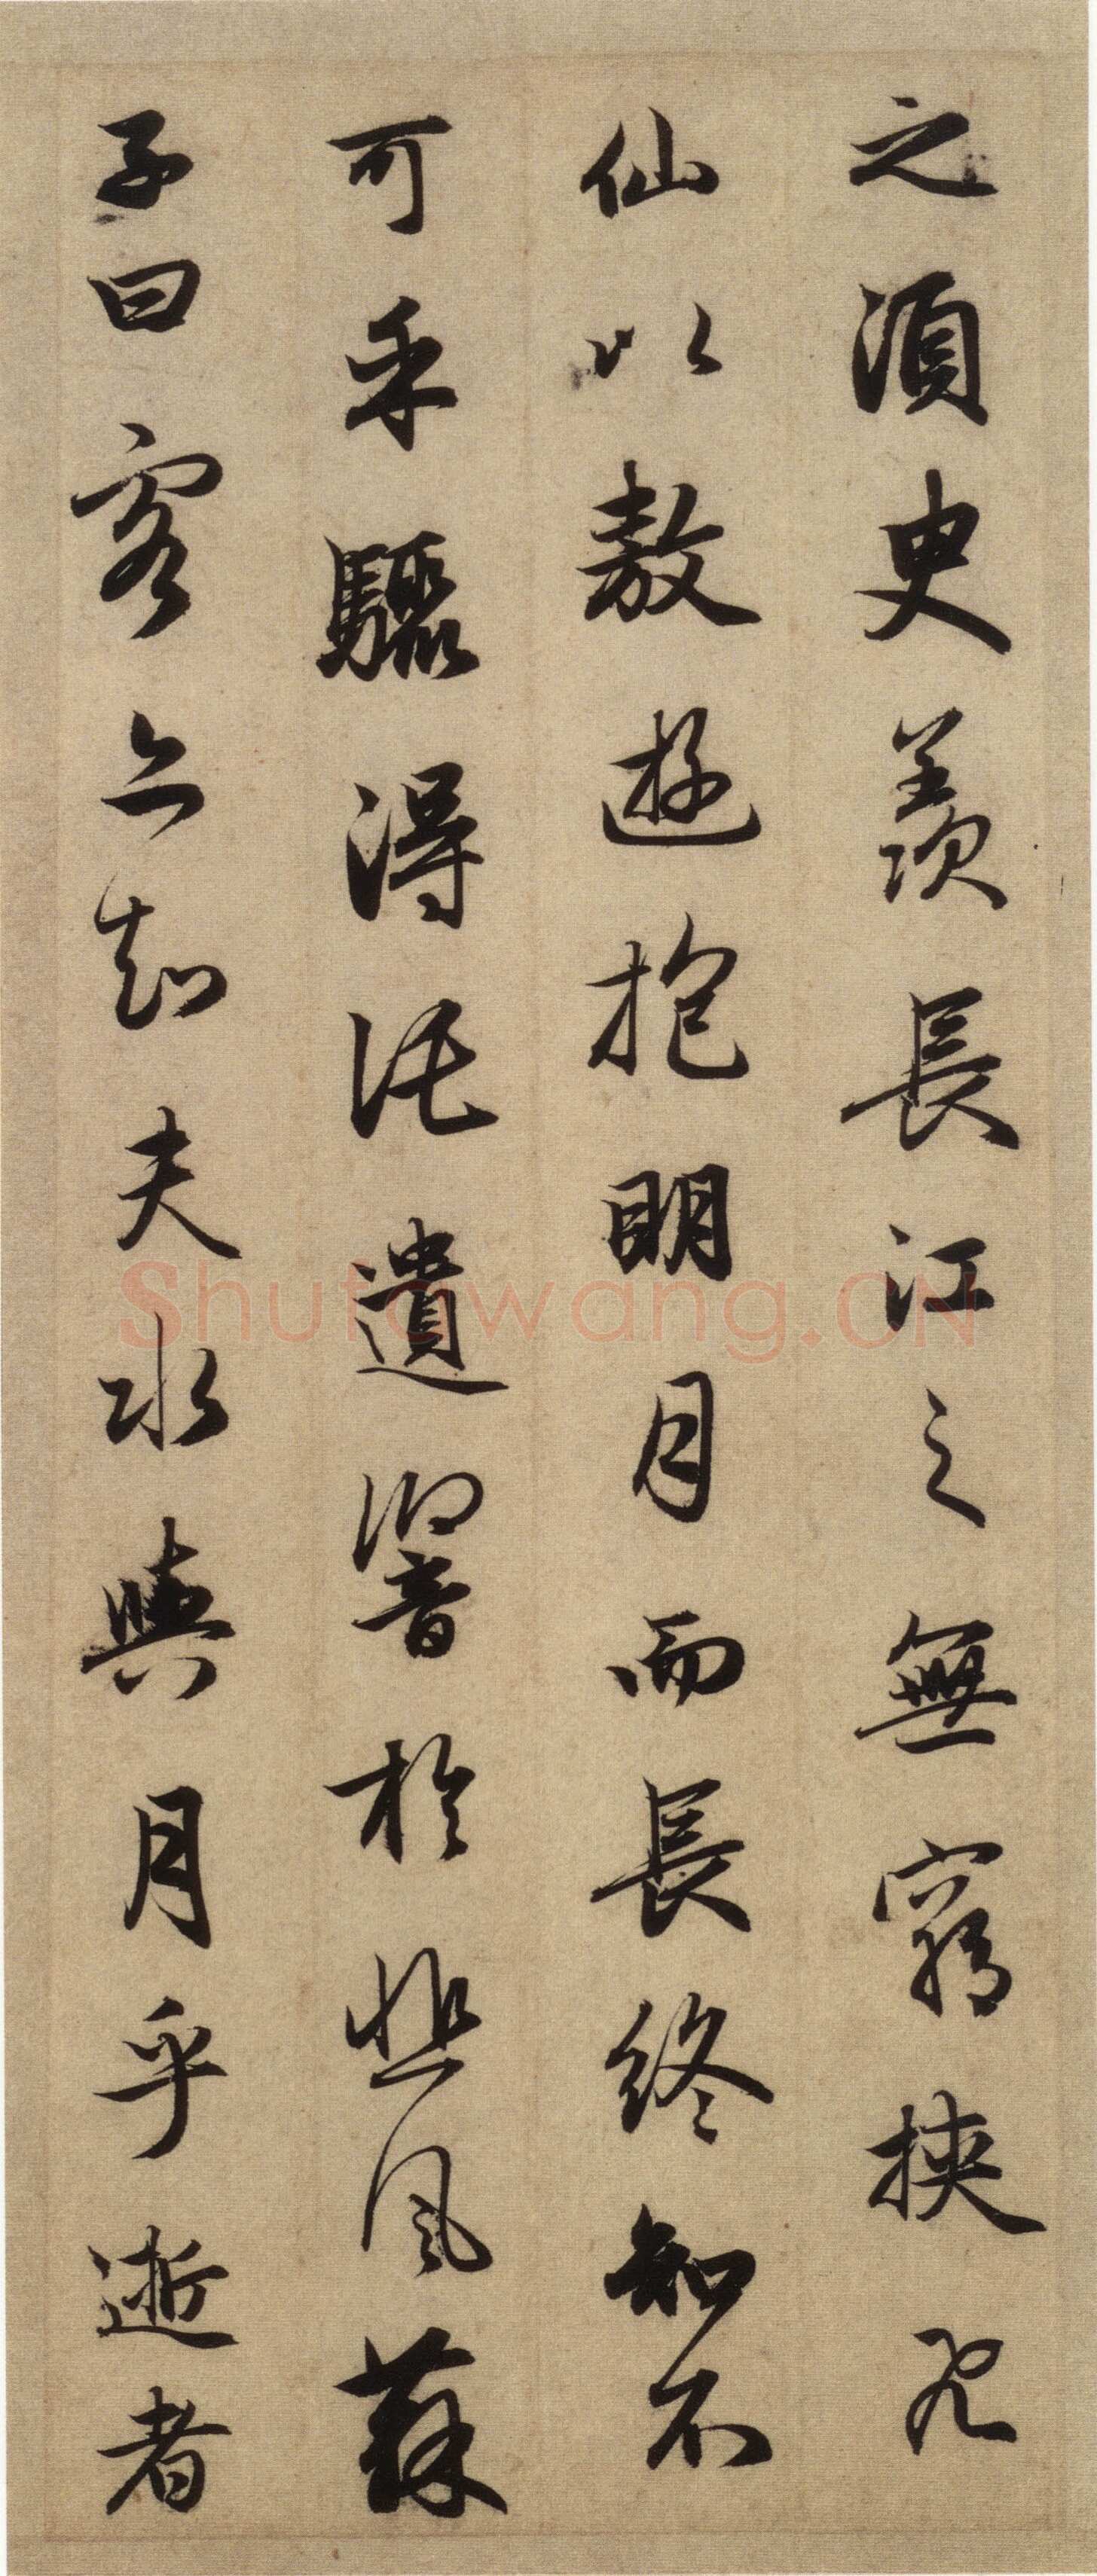 之須臾羨長江之無窮挾飛
仙以敖遊抱明月而長終知不
可乎驟得託遺響於悲風蘇
子曰客亦知夫水與月乎逝者
Shufawang.CN